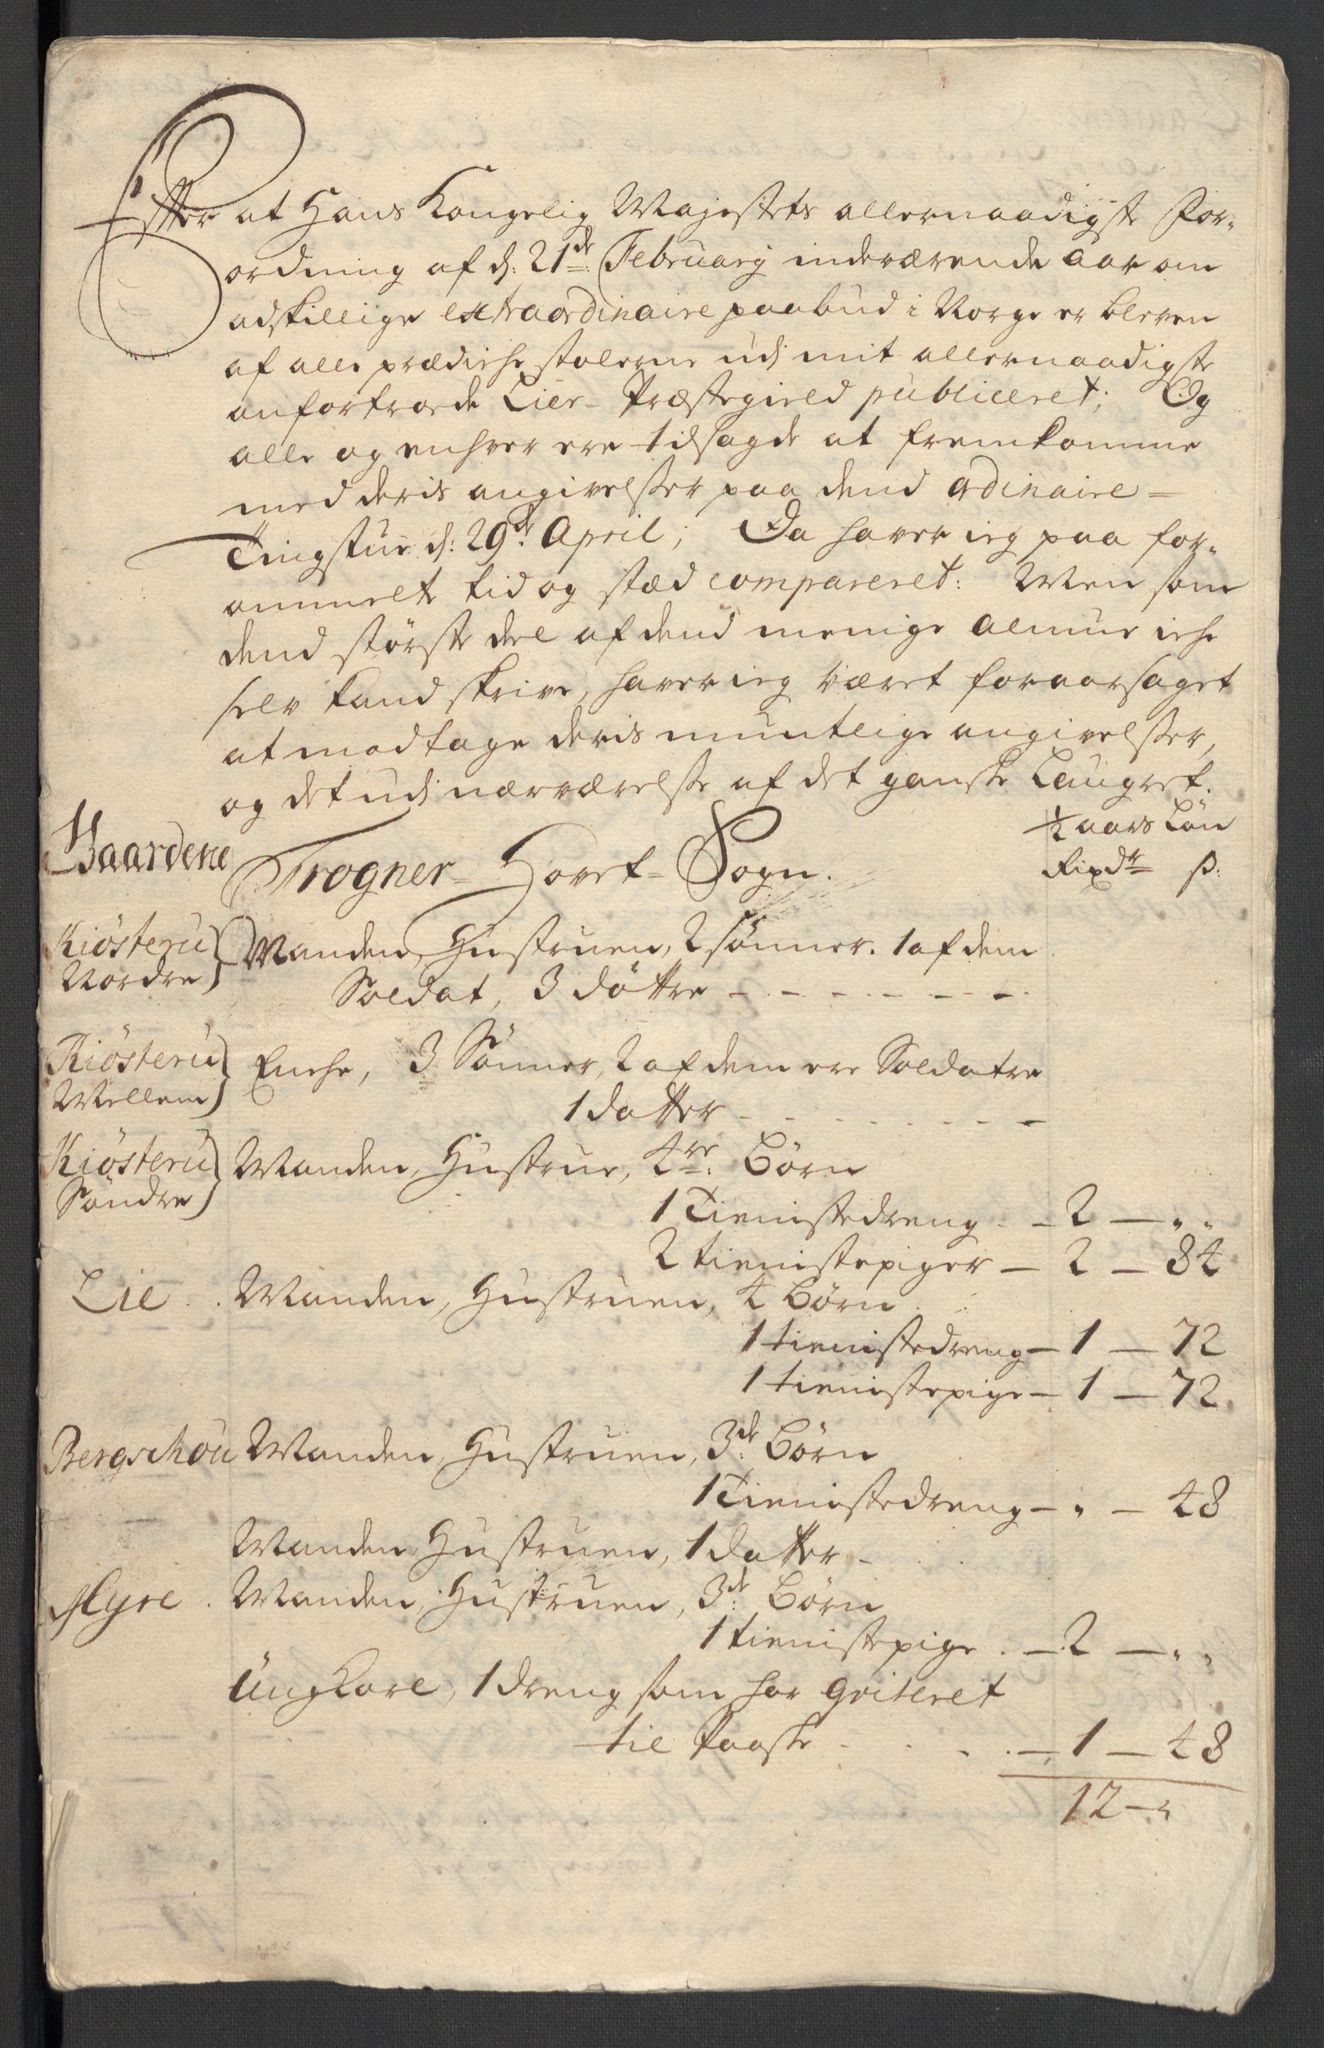 Efter at Hans Kongelig Majestets allernaadigste For-
ordning af d: 21de February inderwærende Aar om
adskillige extraordinaire paabud i Norge er bleven
af alle prædichestolerne udj mit allernaadigste
anfortroede Lier-Præstegield publiceret; Og
alle og enhver ere tilsagde at fremkomme
med deris angivelser paa dend ordinaire
Tingstue d: 29de April; Da haver ieg paa for-
ommelt tid og stæd compareret: Men som
dend største deel af dend menige Almue iche
selv kand skrive, haver ieg været foraarsaget
at modtage deris muntlige angivelser,
og det udj nærværelse af det gandske Laugret.
Gaardene Trogner-Hovet-Sogn. ½ aars Løn
Rixdr ß:
Kiösteru Nordre) Manden, Hustruen, 2 sønner. 1 af dem
Soldat, 3 døttre - - - - - - -
Kiösteru Mellem) Enche, 3 Sønner, 2 af dem ere Soldatre
1 datter - - - - - - -
Kiösteru Søndre) Manden, Hustrue, 4re: Børn
1 Tienistedreng - 2 - " "
2 tienistepiger - 2 - 84
Lie . . Manden, Hustruen, 4 Børn
1 tienistedreng - 1 - 72
1 tienistepige - 1 - 72.
Bergschou Manden, Hustruen, 3de: Børn
1 Tienistedreng - " - 48
Manden, Hustruen, 1 datter -
Myre . Manden, Hustruen, 3de: Børn
1 tienistepige . - 2 - " "
Ungkare, 1 dreng som har qviteret
til Paaske - . . - 1 - 48
12 - "